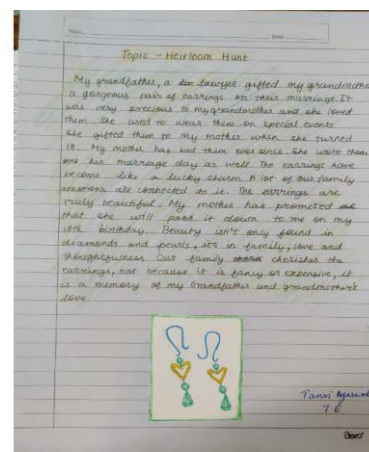 Date
Topic - Heirloom Hunt
My grandfather, a lawyer gifted my grandmother
a gorgeous pair of earrings on their marriage. It
was very precious to my grandmother and she loved
them. She used to wear them on special events.
She gifted them to my mother when she turned
18. My mother has had them ever since. She wore them
one her marriage day as well. The earrings have
become like a lucky charm. A lot of our family
emotions are connected to it. The earrings are
truly beautiful. My mother has promised me
that she will pass it down to me on my
18th birthday. Beauty isn't only found in
diamonds and pearls, it's in family, love and
thoughtfulness. Our family cherishes the
earrings, not because it is fancy or expensive, it
is a memory of my Grandfather and grandmother's
love.
Tanvi
7 E